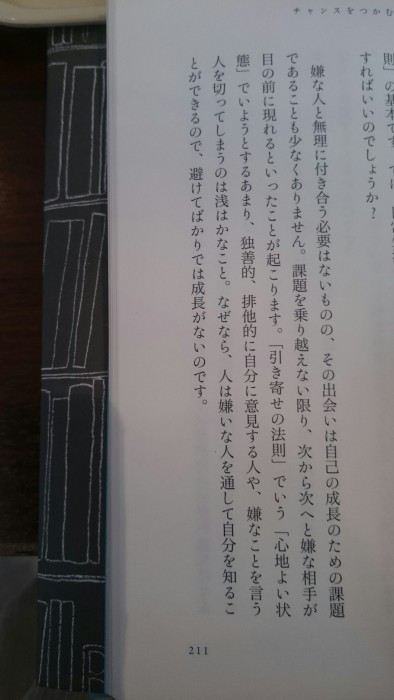 チャンスをつかむ
則」の基本です。では、
すればいいのでしょうか?
嫌な人と無理に付き合う必要はないものの、その出会いは自己の成長のための課題
であることも少なくありません。課題を乗り越えない限り、次から次へと嫌な相手が
目の前に現れるといったことが起こります。「引き寄せの法則」でいう「心地よい状
態」でいようとするあまり、独善的、排他的に自分に意見する人や、嫌なことを言う
人を切ってしまうのは浅はかなこと。なぜなら、人は嫌いな人を通して自分を知るこ
とができるので、避けてばかりでは成長がないのです。
211